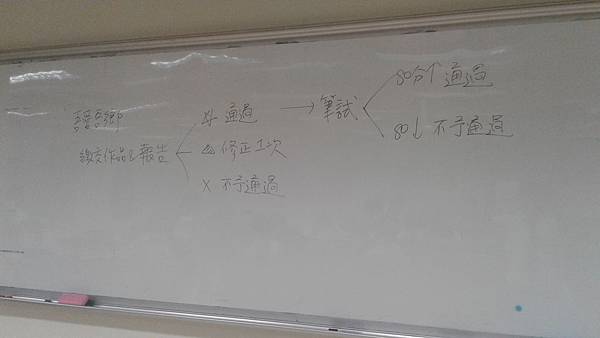 吾愛吾鄉
繳交作品&報告
☆ 通過
△ 修正1次
× 不予通過
→ 筆試
80分↑ 通過
80↓ 不予通過